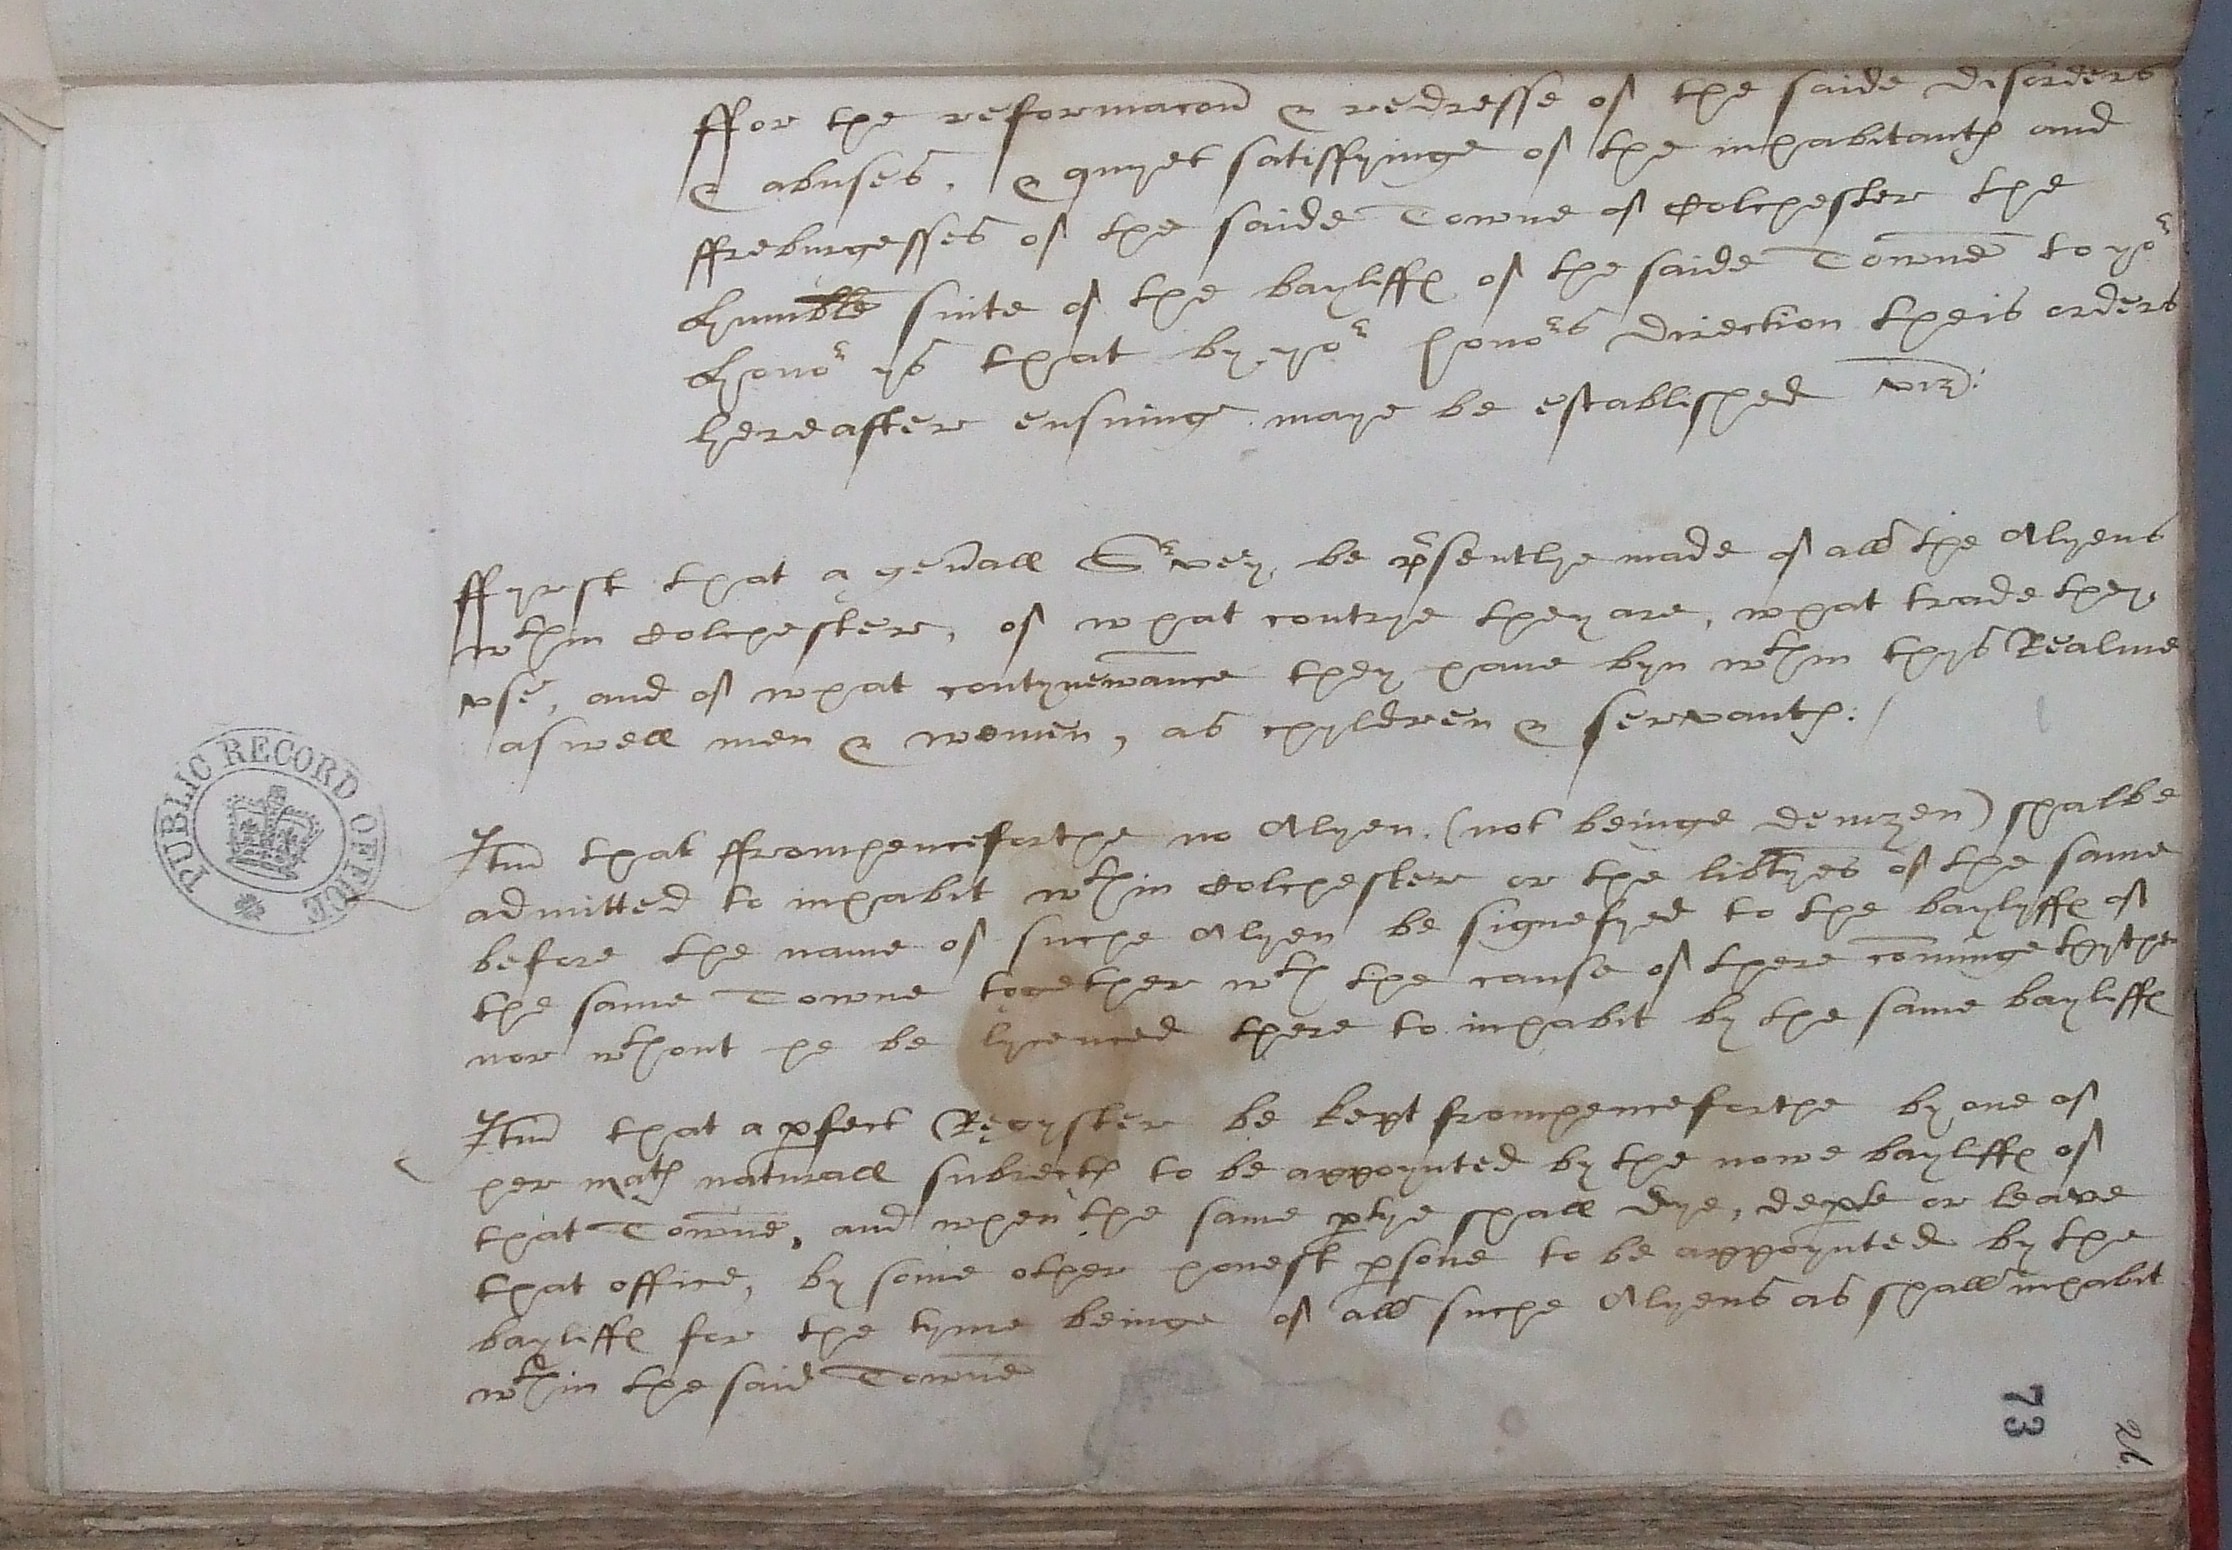 ffor the reformacon & redresse of the saide disorders
& abuses, & quyet satisffyinge of the inhabitants and
ffreburgesses of the saide Towne of Colchester the
humble suite of the bayliffs of the saide Towne to yor
honor ys that by yor honors direction theis orders
hereafter ensuinge maye be established viz:
ffyrst that a genall Survey be psentlye made of all the Alyens
wthin Colchester, of what contrye they are, what trade they
vse, and of what contynewance they haue byn wthin thys Realme
aswell men & women, as chyldren & servants:/
Itm that ffromhenceforthe no Alyen (not beinge denizen) shalbe
admitted to inhabit wthin Colchester or the libtyes of the same
before the name of suche Alyen be signefyed to the baylyffs of
the same Towne together wth the cause of there cominge thyther
nor wthout he be lycenced there to inhabit by the same bayliffs
Itm that a pfect Regyster be kept fromhenceforthe by one of
her mats naturall subiects to be appoynted by the nowe baylffs of
that Towne, and when the same ptye shall dye, depte or leave
that office, by some other honest psone to be appoynted by the
bayliffs for the tyme beinge of all suche Alyens as shall inhabit
wthin the said Towne
PUBLIC RECORD OFFICE
73